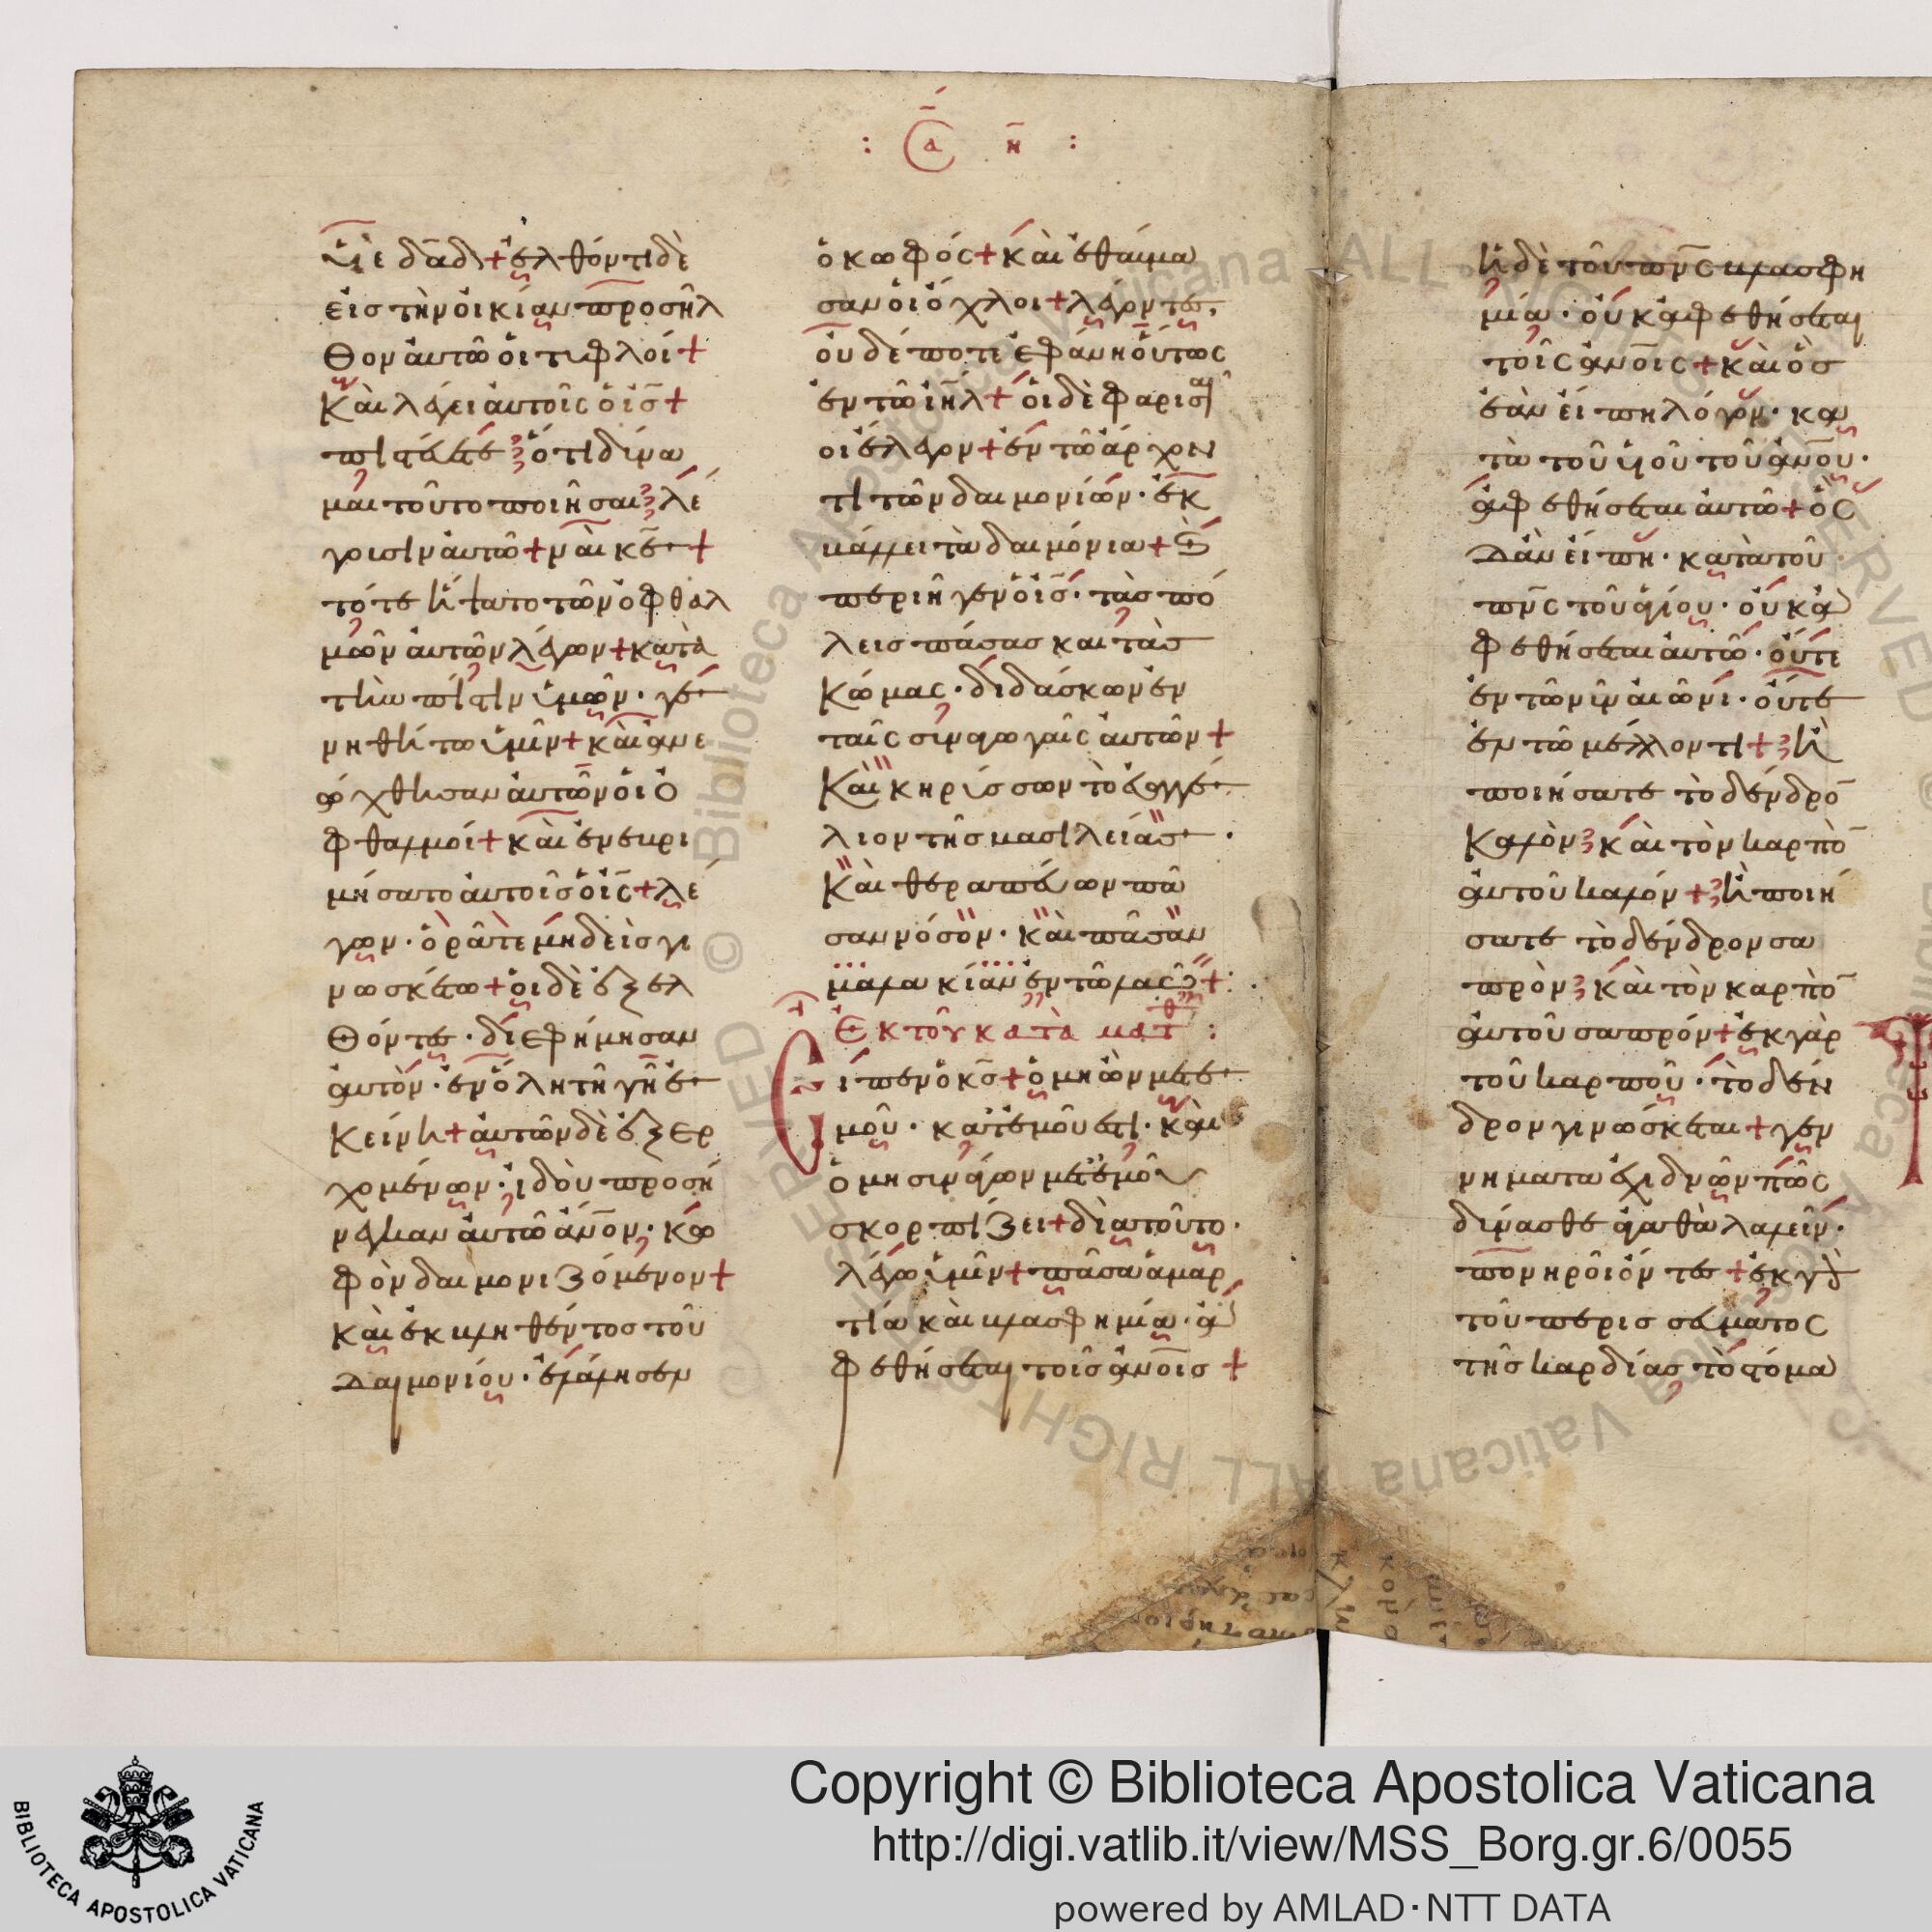 : α η :
ὑιὲ δα̅δ + ἐλθόντι δὲ
εἰς τὴν οἰκίαν προσῆλ
θον ἀυτῶ οἱ τυφλοί +
Καὶ λέγει ἀυτοῖς ὁ ι̅ς +
πιστεύετε ὅτι δύνα
μαι τοῦτο ποιῆσαι λέ
γουσιν ἀυτῶ + ναὶ κ̅ε +
τότε ἥψατο τῶν ὀφθαλ
μῶν ἀυτῶν λέγων + κατὰ
τὴν πίστιν ὑμῶν · γε
νηθήτω ὑμῖν + καὶ ἀνε
ώχθησαν ἀυτῶν οἱ ὀ
φθαλμοί + καὶ ἐνεβρι
μήσατο ἀυτοῖς ὁ ι̅ς + λέ
γων · ὁρᾶτε μηδεὶς γι
νωσκέτω + οἱ δὲ ἐξελ
θόντες · διεφήμησαν
ἀυτὸν · ἐν ὅλη τῆ γῆ ἐ
κείνη + ἀυτῶν δὲ ἐξερ
χομένων · ἰδοὺ προσή
νεγκαν ἀυτῶ ἄν̅ον · κω
φὸν δαιμονιζόμενον +
Καὶ ἐκβληθέντος τοῦ
δαιμονίου · ἐλάλησεν
ὁ κωφός + καὶ ἐθαύμα
σαν οἱ ὄχλοι + λέγοντες,
ὀυδέποτε ἐφάνη ὅυτως
ἐν τῶ ι̅η̅λ + οἱ δὲ φαρισαῖ
οι ἔλεγον + ἐν τῶ ἄρχον
τι τῶν δαιμονίων · ἐκ
βάλλει τὰ δαιμόνια + Καὶ
περιῆγεν ὁ ι̅ς · τὰς πό
λεις πάσας καὶ τὰς
Κώμας · διδάσκων ἐν
ταῖς συναγωγαῖς ἀυτῶν +
Καὶ κηρύσσων τὸ ἐυαγγέ
λιον τῆς βασιλείας ·
Καὶ θεραπεύων πᾶ
σαν νόσον · καὶ πᾶσαν
μαλακίαν ἐν τῶ λαῶ + :
Ἐκ τοῦ κατὰ ματθ :
Εἶπεν ὁ κ̅ς + ὁ μὴ ὢν μετ ἐ
μοῦ · κατ ἐμοῦ ἐστι · καὶ
ὁ μὴ συνάγων μετ ἐμοῦ
σκορπίζει + διὰ τοῦτο ·
λέγω ὑμῖν + πᾶσα ἁμαρ
τία καὶ βλασφημία · ἀ
φεθήσεται τοῖς ἀν̅οις +
ἡ δὲ τοῦ πν̅ς βλασφη
μία · ὀυκ ἀφεθήσεται
τοῖς ἀν̅οις + καὶ ὃς
ἐὰν εἴπη λόγον · κα
τὰ τοῦ ὑιοῦ τοῦ ἀν̅ου ·
ἀφεθήσεται ἀυτῶ + ὃς
δ ἂν εἴπη · κατὰ τοῦ
πν̅ς τοῦ ἁγίου · ὀυκ ἀ
φεθήσεται ἀυτῶ · ὄυτε
ἐν τῶ νῦν ἀιῶνι · ὄυτε
ἐν τῶ μέλλοντι + ἢ
ποιήσατε τὸ δένδρο̅
Καλὸν καὶ τὸν καρπὸ̅
ἀυτοῦ καλόν + ἢ ποιή
σατε τὸ δένδρον σα
πρὸν καὶ τὸν καρπὸ̅
ἀυτοῦ σαπρόν + ἐκ γὰρ
τοῦ καρποῦ · τὸ δέν
δρον γινώσκεται + γεν
νήματα ἐχιδνῶν πῶς
δύνασθε ἀγαθὰ λαλεῖν ·
πονηροὶ ὄντες + ἐκ γὰρ
τοῦ περισσεύματος
τῆς καρδίας τὸ στόμα
BIBLIOTECA APOSTOLICA VATICANA
Copyright © Biblioteca Apostolica Vaticana
http://digi.vatlib.it/view/MSS_Borg.gr.6/0055
powered by AMLAD·NTT DATA